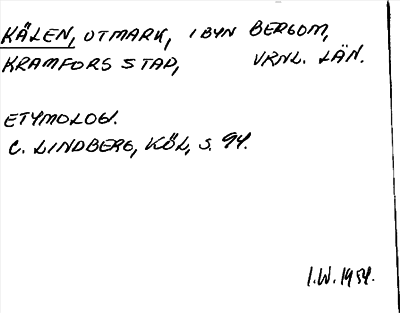 KÄLEN, UTMARK, I BYN BERGOM,
KRAMFORS STAD, VRNL. LÄN.
ETYMOLOG.
C. LINDBERG, KÖL, S. 94.
I.W. 1954.